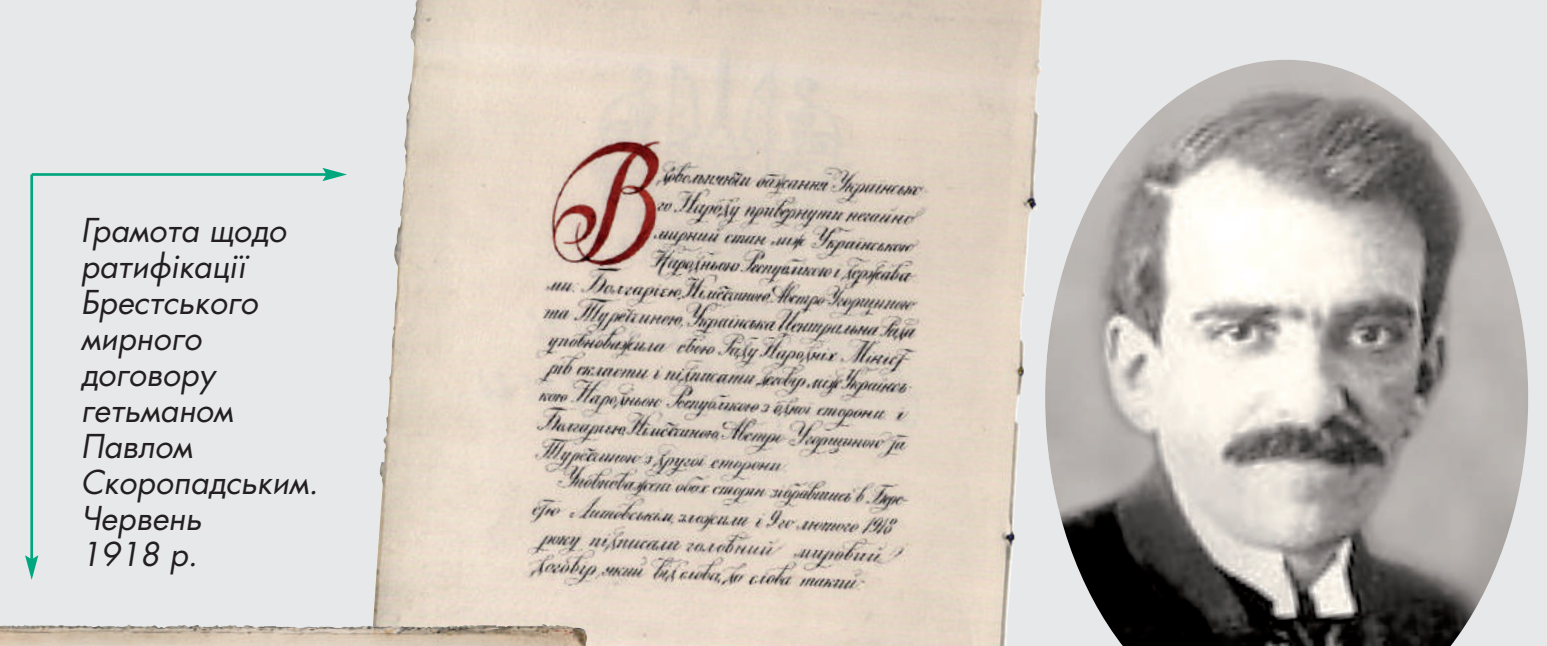 Грамота щодо
ратифікації
Брестського
мирного
договору
гетьманом
Павлом
Скоропадським.
Червень
1918 р.
Вдовольняючи бажання Українсько-
го Народу привернути негайно
мирний стан між Українською
Народньою Республікою і держава-
ми: Болгарією, Німеччиною, Австро-Угорщиною
та Туреччиною, Українська Центральна Рада
уповноважила свою Раду Народніх Мініст-
рів скласти і підписати договір між Українсь-
кою Народньою Республікою з одної сторони і
Болгарією, Німеччиною, Австро-Угорщиною та
Туреччиною з другої сторони.
Уповноважені обох сторін зібравшись в Бере-
стю Литовськім, зложили і 9го лютого 1918
року підписали головний мировий
договір, який від слова до слова такий: